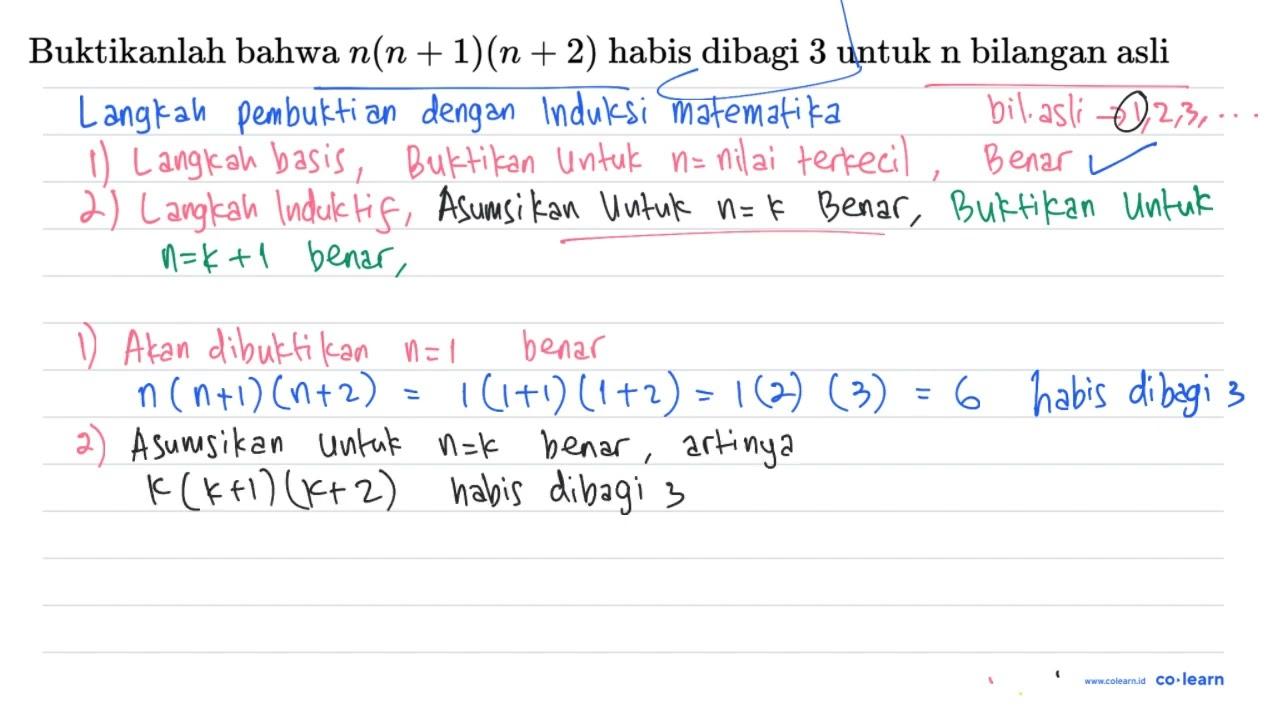 Buktikanlah bahwa n(n + 1)(n + 2) habis dibagi 3 untuk n bilangan asli
Langkah pembuktian dengan Induksi matematika bil.asli → 1, 2, 3, ...
1) Langkah basis, Buktikan Untuk n = nilai terkecil, Benar ✓
2) Langkah Induktif, Asumsikan Untuk n = k Benar, Buktikan Untuk
n = k + 1 benar,
1) Akan dibuktikan n = 1 benar
n(n+1)(n+2) = 1(1+1)(1+2) = 1(2)(3) = 6 habis dibagi 3
2) Asumsikan Untuk n=k benar, artinya
k(k+1)(k+2) habis dibagi 3
www.colearn.id co·learn